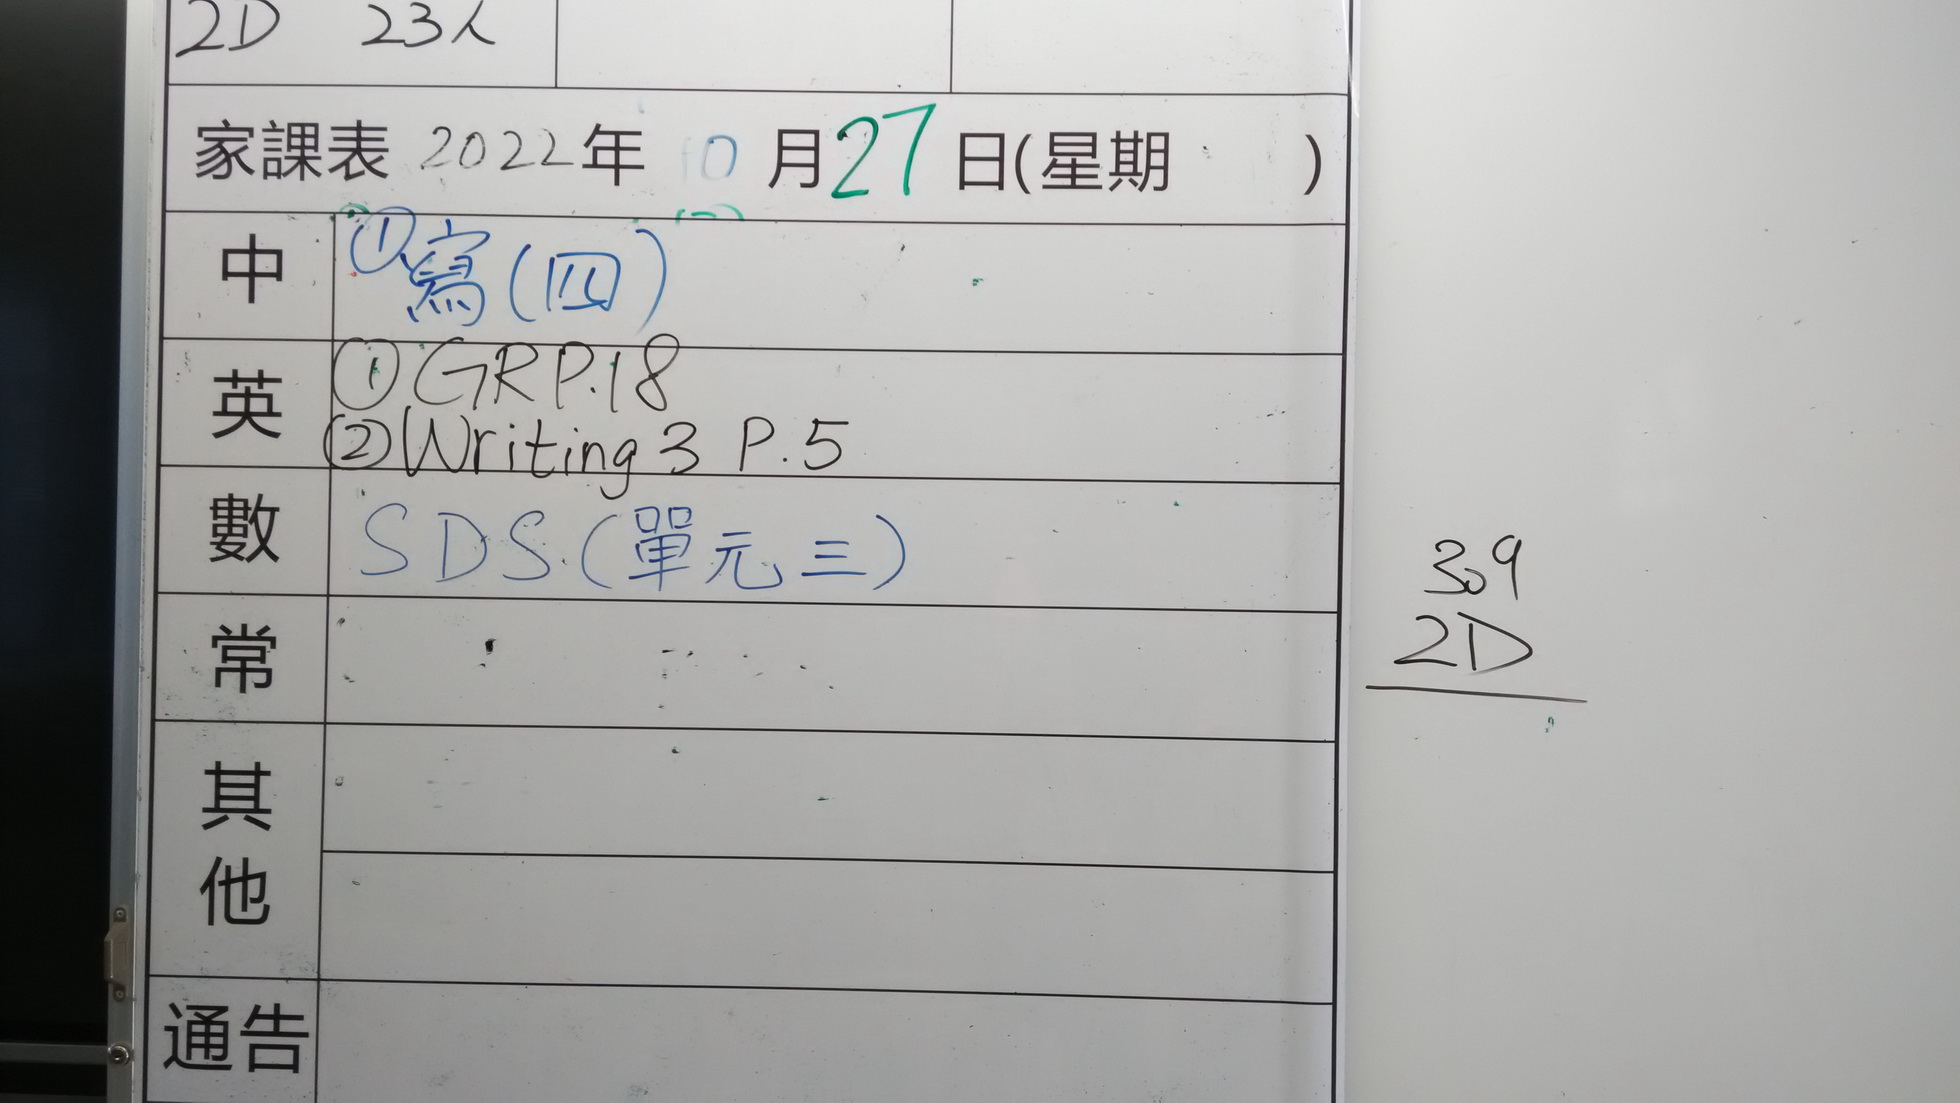 2D 23人
家課表 2022年 10月27日(星期 )
中 ①寫(四)
英 ①GR P.18
②Writing 3 P.5
數 SDS.(單元三)
常
其他
通告
309
2D